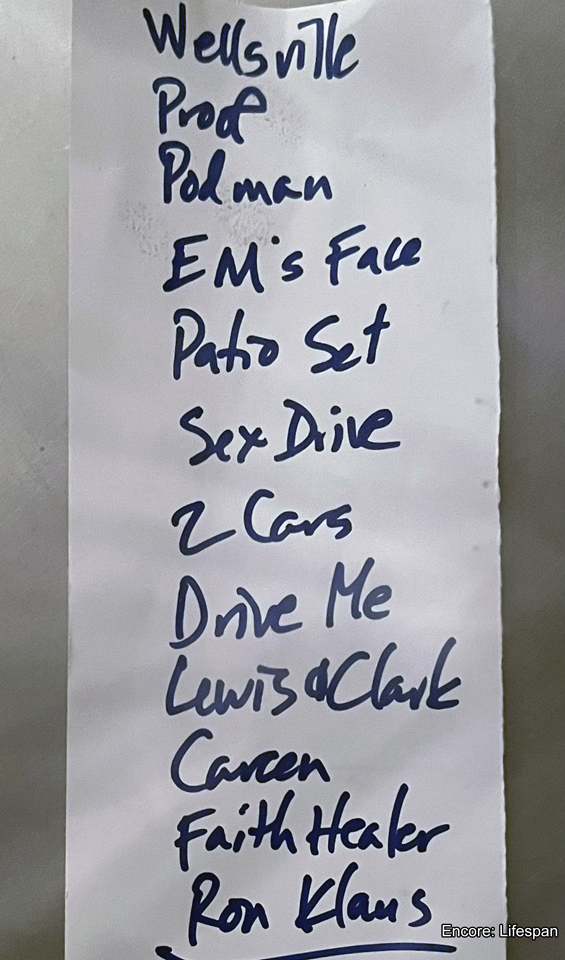 Wellsville
Proof
Pod man
EM's Face
Patio Set
Sex Drive
2 Cars
Drive Me
Lewis & Clark
Careen
Faith Healer
Ron Klaus
Encore: Lifespan